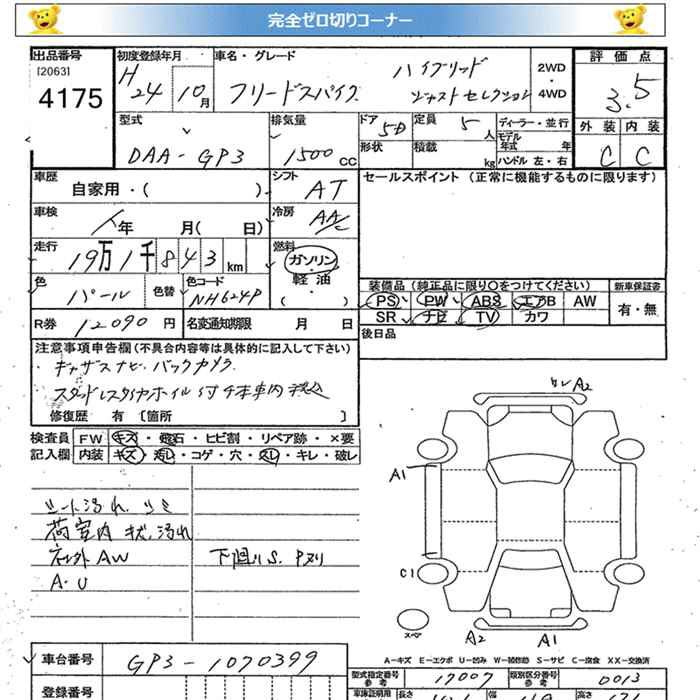 完全ゼロ切りコーナー
出品番号 初度登録年月 車名・グレード 評価点
[2063] H ハイブリッド 2WD
4175 24 10月 フリードスパイク ジャストセレクション 4WD 3.5
型式 排気量 ドア 5D 定員 5人 ディーラー・並行 外装 内装
DAA-GP3 1500cc 形状 積載 kg モデル年式 年 C C
ハンドル 左・右
車歴 自家用・( ) シフト AT セールスポイント(正常に機能するものに限ります)
車検 年 月( 日) 冷房 AAC
走行 19万1千843km 燃料 ガソリン・軽油・( )
色 パール 色替 色コード NH624P 装備品(純正品に限り○をつけてください) 新車保証書
PS PW ABS エアB AW 有・無
R券 12090円 名変通知期限 月 日 SR ナビ TV カワ
後日品
注意事項申告欄(不具合内容等は具体的に記入して下さい)
ギャザズナビ バックカメラ
スタッドレスタイヤホイル付 4本車内 税込
修復歴 有 〔箇所 〕
検査員 FW キズ・飛石・ヒビ割・リペア跡・×要
記入欄 内装 キズ・汚レ・コゲ・穴・スレ・キレ・破レ
シート汚れ、シミ
荷室内 キズ、汚れ
社外AW 下廻りS、Pヌリ
A・U
A2
A1
C1
スペア
A2 A1
A-キズ E-エクボ U-凹み W-補修跡 S-サビ C-腐食 XX-交換済
車台番号 GP3-1070399
型式指定番号 参考 17007 類別区分番号 参考 0013
登録番号 車庫証明用 長さ 幅 高さ